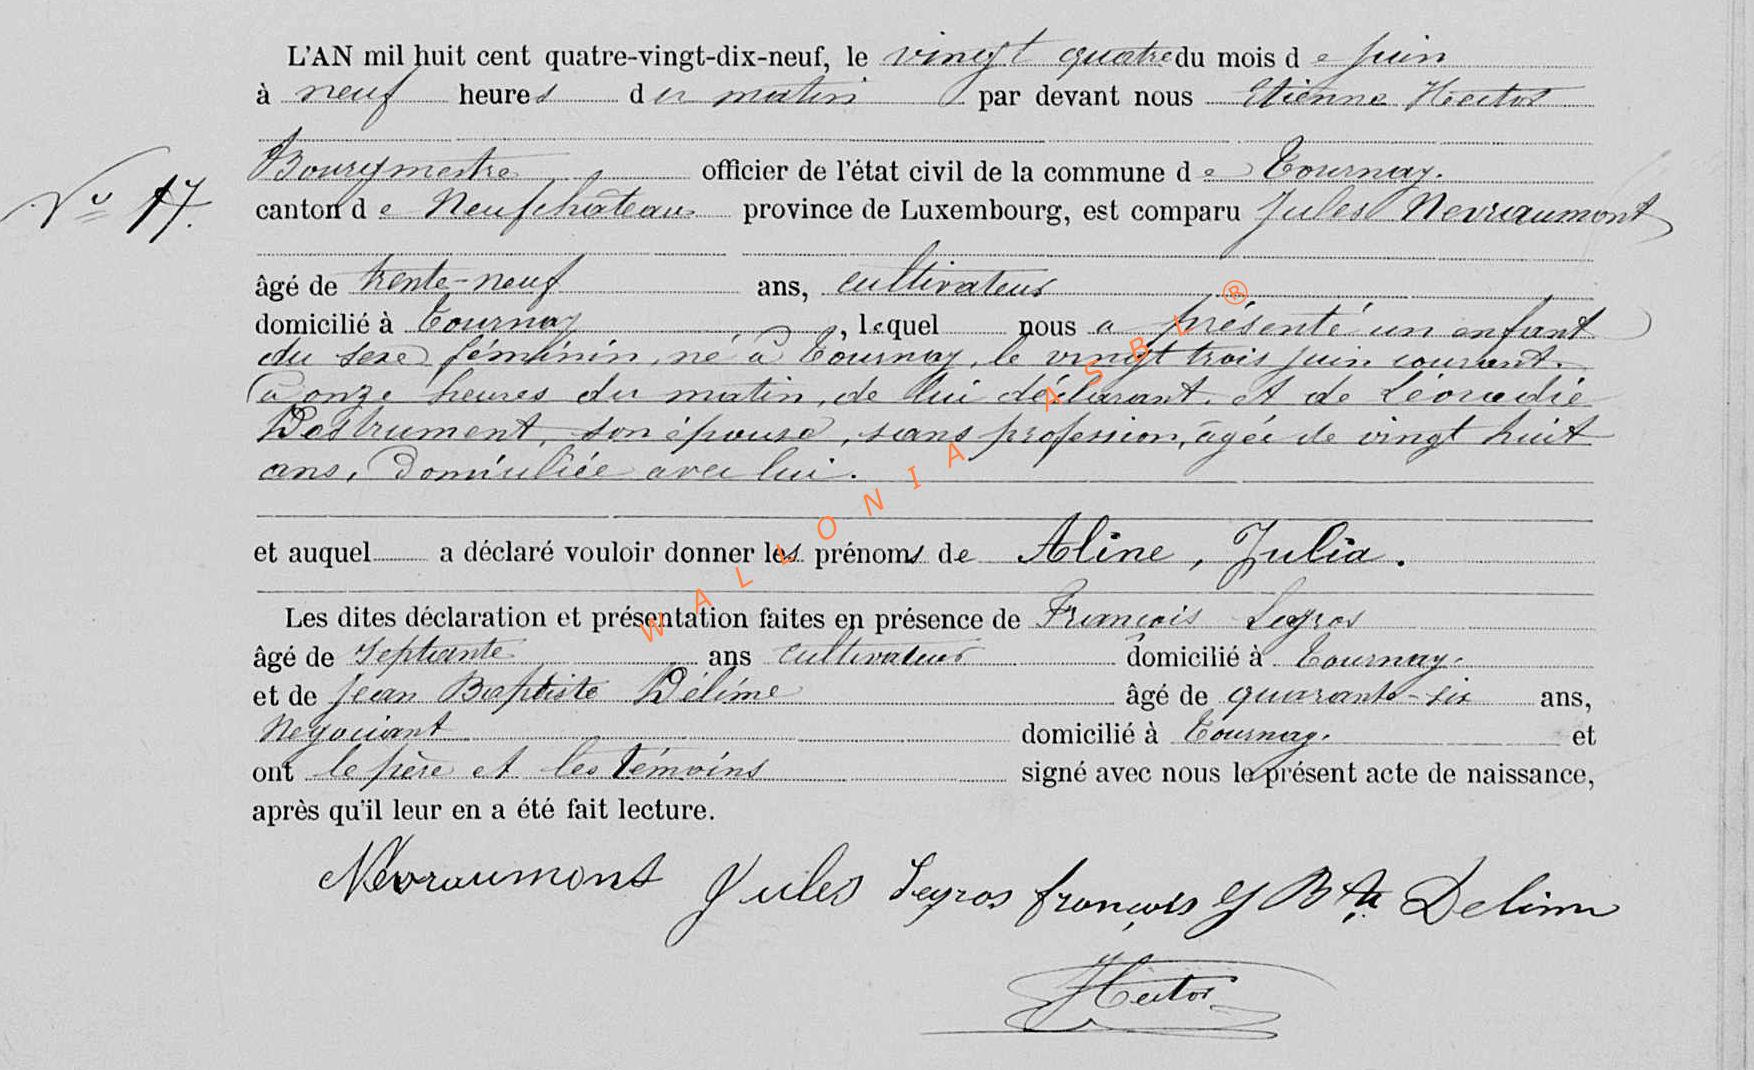 L'AN mil huit cent quatre-vingt-dix-neuf, le vingt quatre du mois de juin
à neuf heures du matin par devant nous Etienne Hector
Bourgmestre officier de l'état civil de la commune de Tournay.
No 17.
canton de Neufchâteau province de Luxembourg, est comparu Jules Nevraumont
âgé de trente-neuf ans, cultivateur
domicilié à Tournay, lequel nous a présenté un enfant
du sexe féminin, né à Tournay, le vingt trois juin courant.
à onze heures du matin, de lui déclarant. et de Léocadie
Destrument, son épouse, sans profession, âgée de vingt huit
ans, domiciliée avec lui.
et auquel a déclaré vouloir donner les prénoms de Aline, Julia.
Les dites déclaration et présentation faites en présence de François Legros
âgé de septante ans cultivateur domicilié à Tournay.
et de Jean Baptiste Délime âgé de quarante-six ans,
Negociant domicilié à Tournay. et
ont le père et les témoins signé avec nous le présent acte de naissance,
après qu'il leur en a été fait lecture.
Nevraumont Jules Legros françois J Bte Delime
Hector
WALLONIA ASBL ®